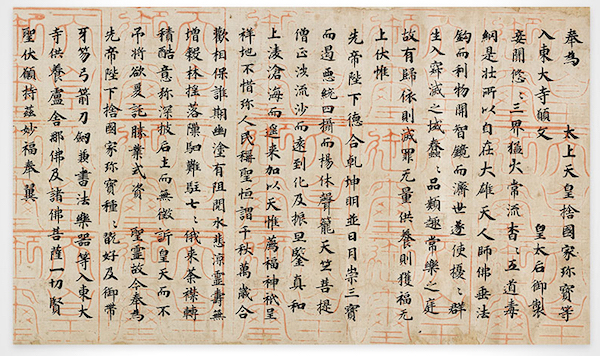 奉為　太上天皇捨國家珎寶等
入東大寺願文　皇太后御製
妾聞悠〻三界猛火常流杳〻五道毒
網是壯所以自在大雄天人師佛垂法
鈎而利物開智鏡而濟世遂使擾〻群
生入寂滅之域蠢〻品類趣常樂之庭
故有歸依則滅罪无量供養則獲福无
上伏惟
先帝陛下德合乾坤明並日月崇三寶
而遏惡統四攝而揚休聲籠天竺菩提
僧正渉流沙而遠到化及振旦鑒真和
上凌滄海而遙來加以天惟薦福神祇呈
祥地不惜珎人民稱聖恒謂千秋萬歳合
歡相保誰期幽塗有阻閲水悲凉靈壽無
增穀林搖落隟駟難駐七〻俄來荼襟轉
積酷意弥深披后土而無徵訴皇天而不
弔將欲爰託勝業式資　聖靈故今奉為
先帝陛下捨國家珎寶種〻翫好及御帶
牙笏弓箭刀劔兼書法樂器等入東大
寺供養盧舍那佛及諸佛菩薩一切賢
聖伏願持茲妙福奉翼